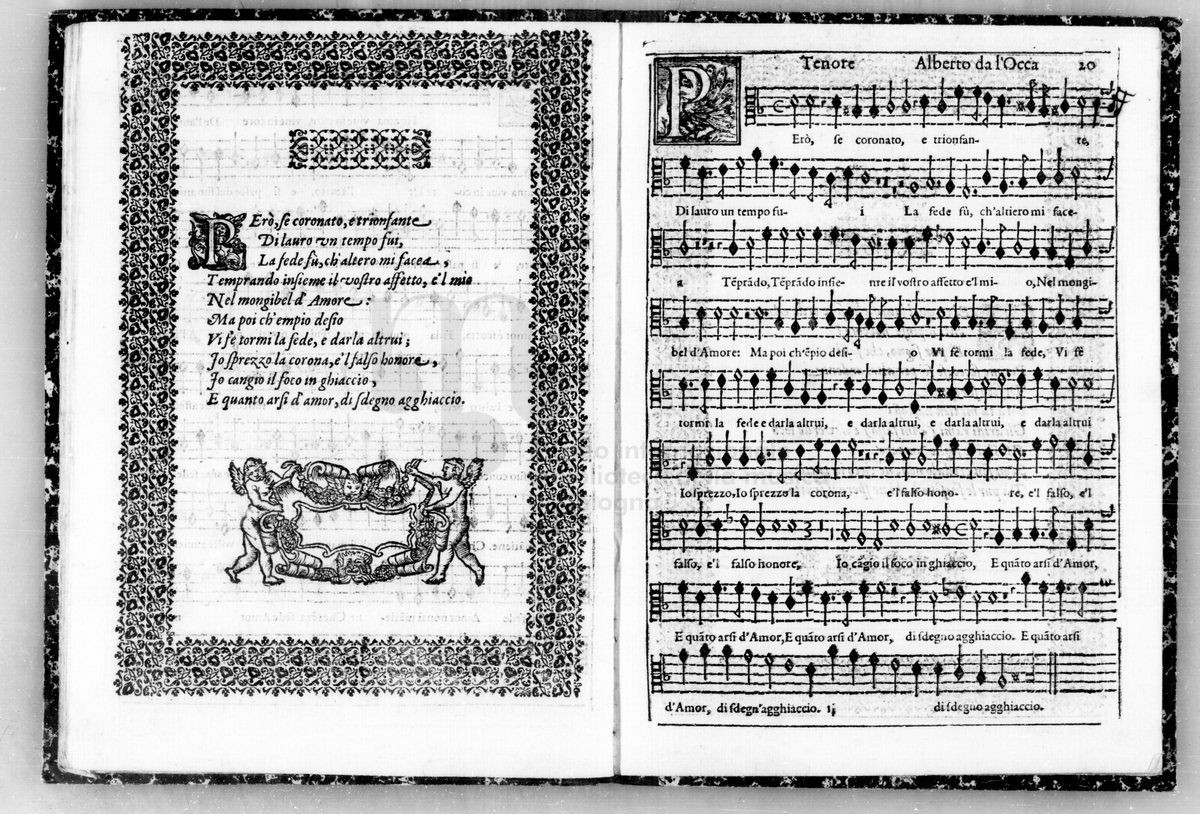 PErò, se coronato, e trionfante
Di lauro vn tempo fui,
La fede fù, ch'altero mi facea,
Temprando insieme il vostro affetto, e'l mio
Nel mongibel d'Amore:
Ma poi ch'empio desio
Vi fè tormi la fede, e darla altrui;
Io sprezzo la corona, e'l falso honore,
Io cangio il foco in ghiaccio,
E quanto arsi d'amor, di sdegno agghiaccio.
Tenore Alberto da l'Occa 20
PErò, se coronato, e trionfan- te,
Di lauro un tempo fu- i La fede fù, ch'altiero mi face-
a Tēprādo, Tēprādo insie- me il vostro affetto e'l mi- o, Nel mongi-
bel d'Amore: Ma poi ch'ēpio desi- o Vi fè tormi la fede, Vi fè
tormi la fede e darla altrui, e darla altrui, e darla altrui, e darla altrui
Io sprezzo, Io sprezzo la corona, e'l falso hono- re, e'l falso, e'l
falso, e'l falso honore, Io cāgio il foco in ghiaccio, E quāto arsi d'Amor,
E quāto arsi d'Amor, E quāto arsi d'Amor, di sdegno agghiaccio. E quāto arsi
d'Amor, di sdegn'agghiaccio. ij di sdegno agghiaccio.